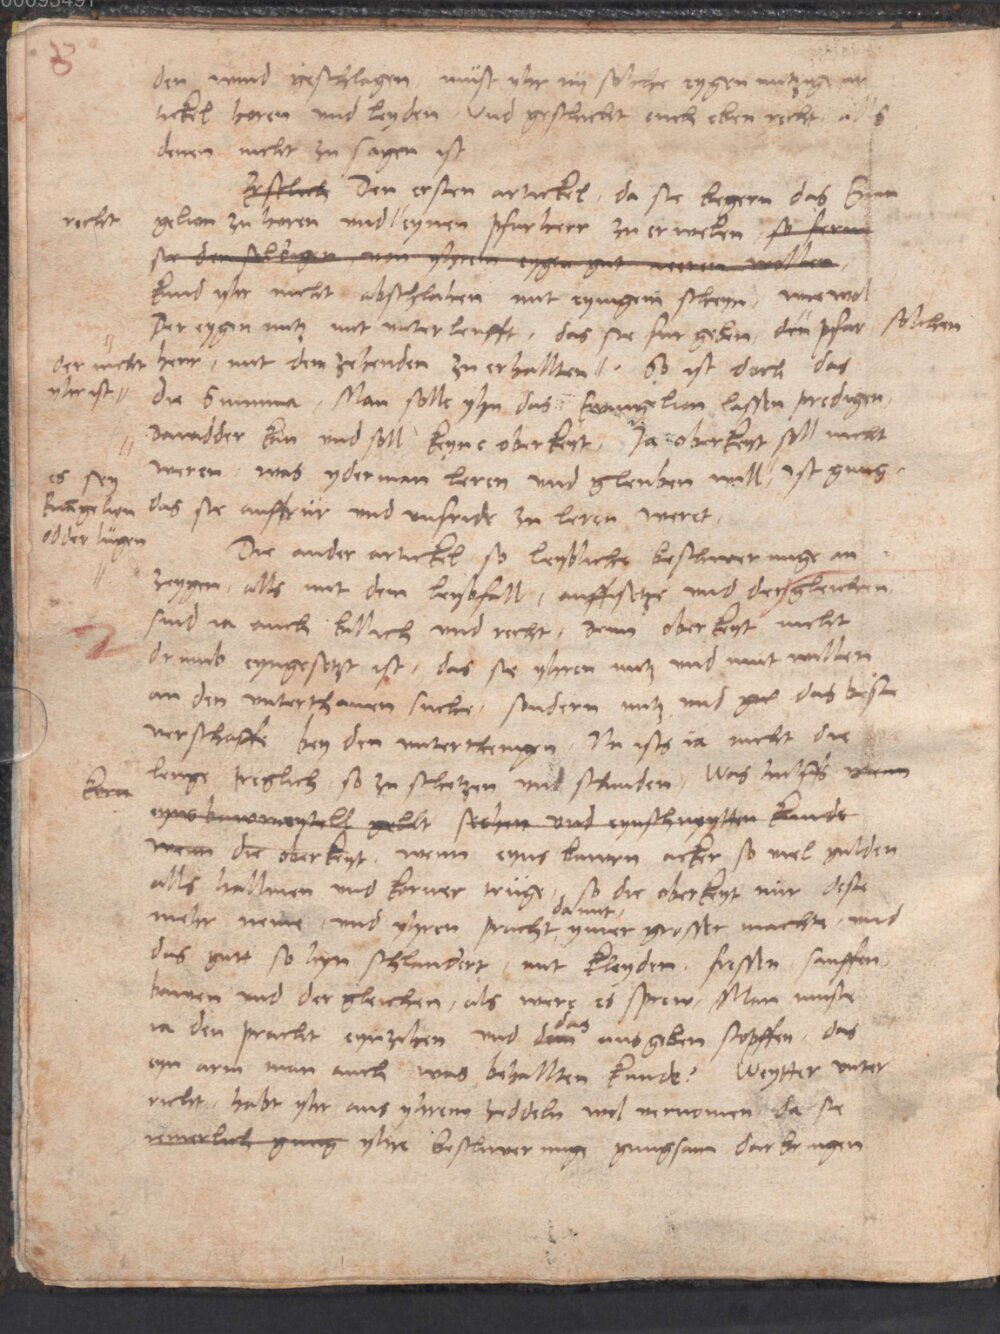 00093491
den wind geschlagen must yhr itzt solche eygen nutzige ar
tickel horen und leyden. Und geschicht euch eben recht, alls
denen nicht zu sagen ist
Erstlich Den ersten artickel, da sie begern das Euan
recht
gelion zu horen und eynen pfarherr zu erwelen, so ferne
sie den selbigen, von yhrem eygen gut neeren wollen,
kund yhr nicht abschlahen mit eynigem scheyn, wie wol
Der eygen nutz mit unter leufft, das sie fur geben, den pfar
solchen
der nicht
yhr ist
herr, mit dem zehenden zu erhallten. So ist doch das
die Summa, Man solle yhn das Euangelion lassen predigen,
dawidder kan und soll keyne oberkeyt, Ja oberkeyt soll nicht
es sey
Euangelion
odder lügen
weren, was yderman leren und gleuben will, ist gnug,
das sie auffrur und unfride zu leren weret,
Die ander artickel, so leybliche beschwerunge an
zeygen, alls mit dem leybfall, auffsetze und dergleichen,
sind ia auch billich und recht, denn oberkeyt nicht
drumb eyngesetzt ist, das sie yhren nutz und mutwillen
an den unterthanen suche, sondern nutz und das beste
verschaffe bey den unterthenigen, Nu ists ia nicht die
lenge treglich, so zu schetzen und schinden, Was hulffs wenn
eyns
wenn die oberkeyt, wenn eyns bawrn acker so viel gulden
alls hallmen und korner truge, so die oberkeyt nur deste
mehr neme, und yhren pracht damit ymer grosser machte, und
das gutt so hyn schlaudert, mit kleyden, fressen, sauffen,
bawen und der gleichen, als were es sprew, Man muste
ia den pracht eynzihen und das ausgeben stopffen, das
eyn arm man auch was behallten kunde? Weytter unter
richt, habt yhr aus yhrem zeddeln wol vernomen, da sie
yhre beschwerunge gnugsam darbringen